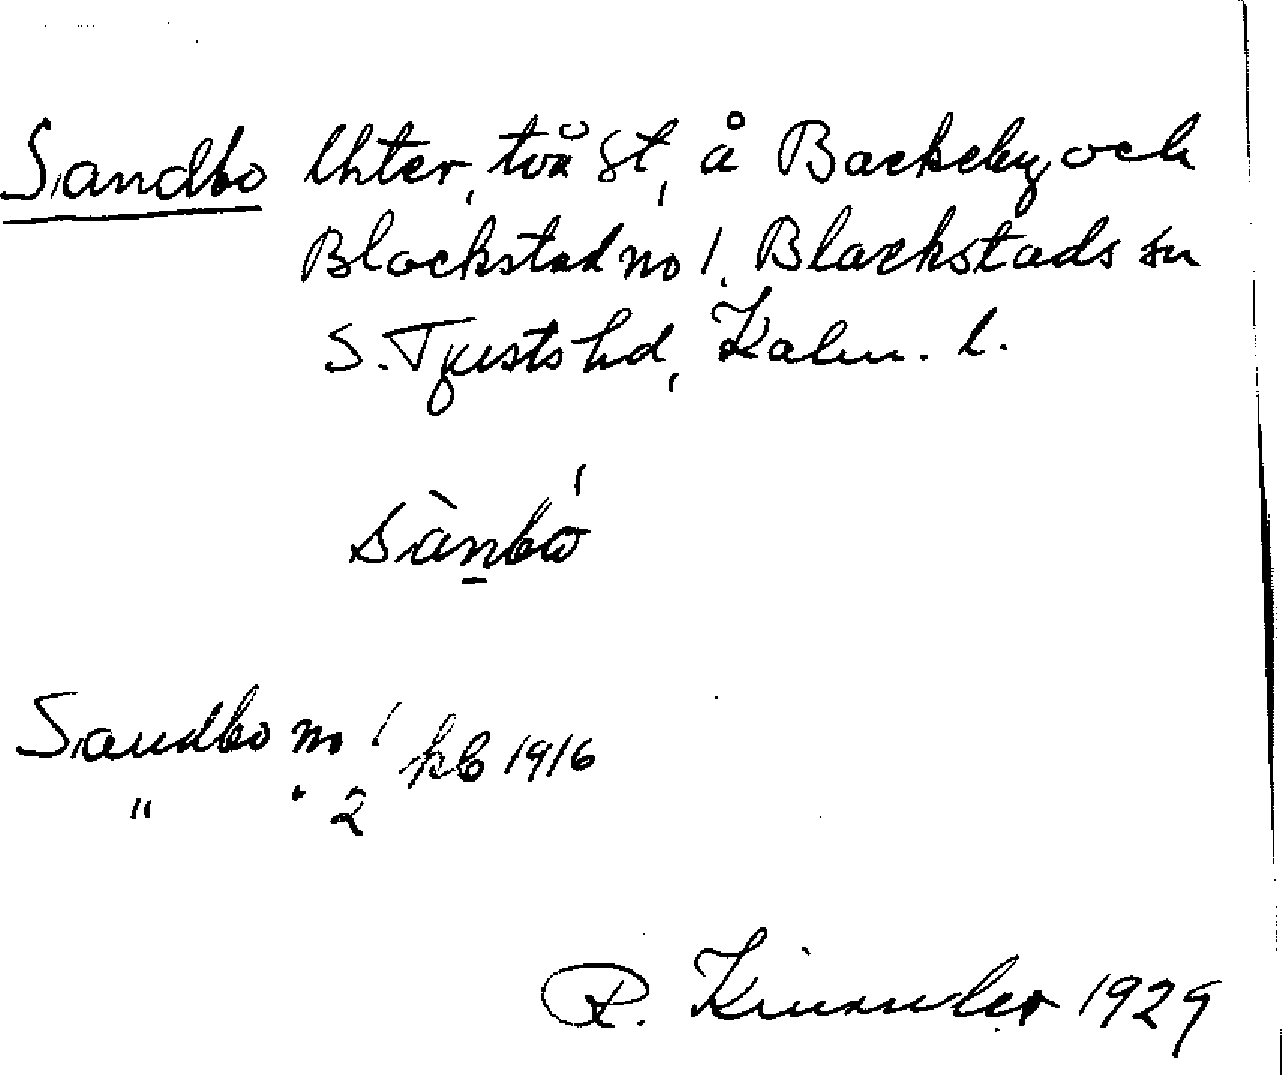 Sandbo lhter, två st, å Backeby och
Blackstad no 1, Blackstads sn
S. Tjusts hd, Kalm. l.
Sànbó
Sandbo no 1 kb 1916
" " 2
R. 1929